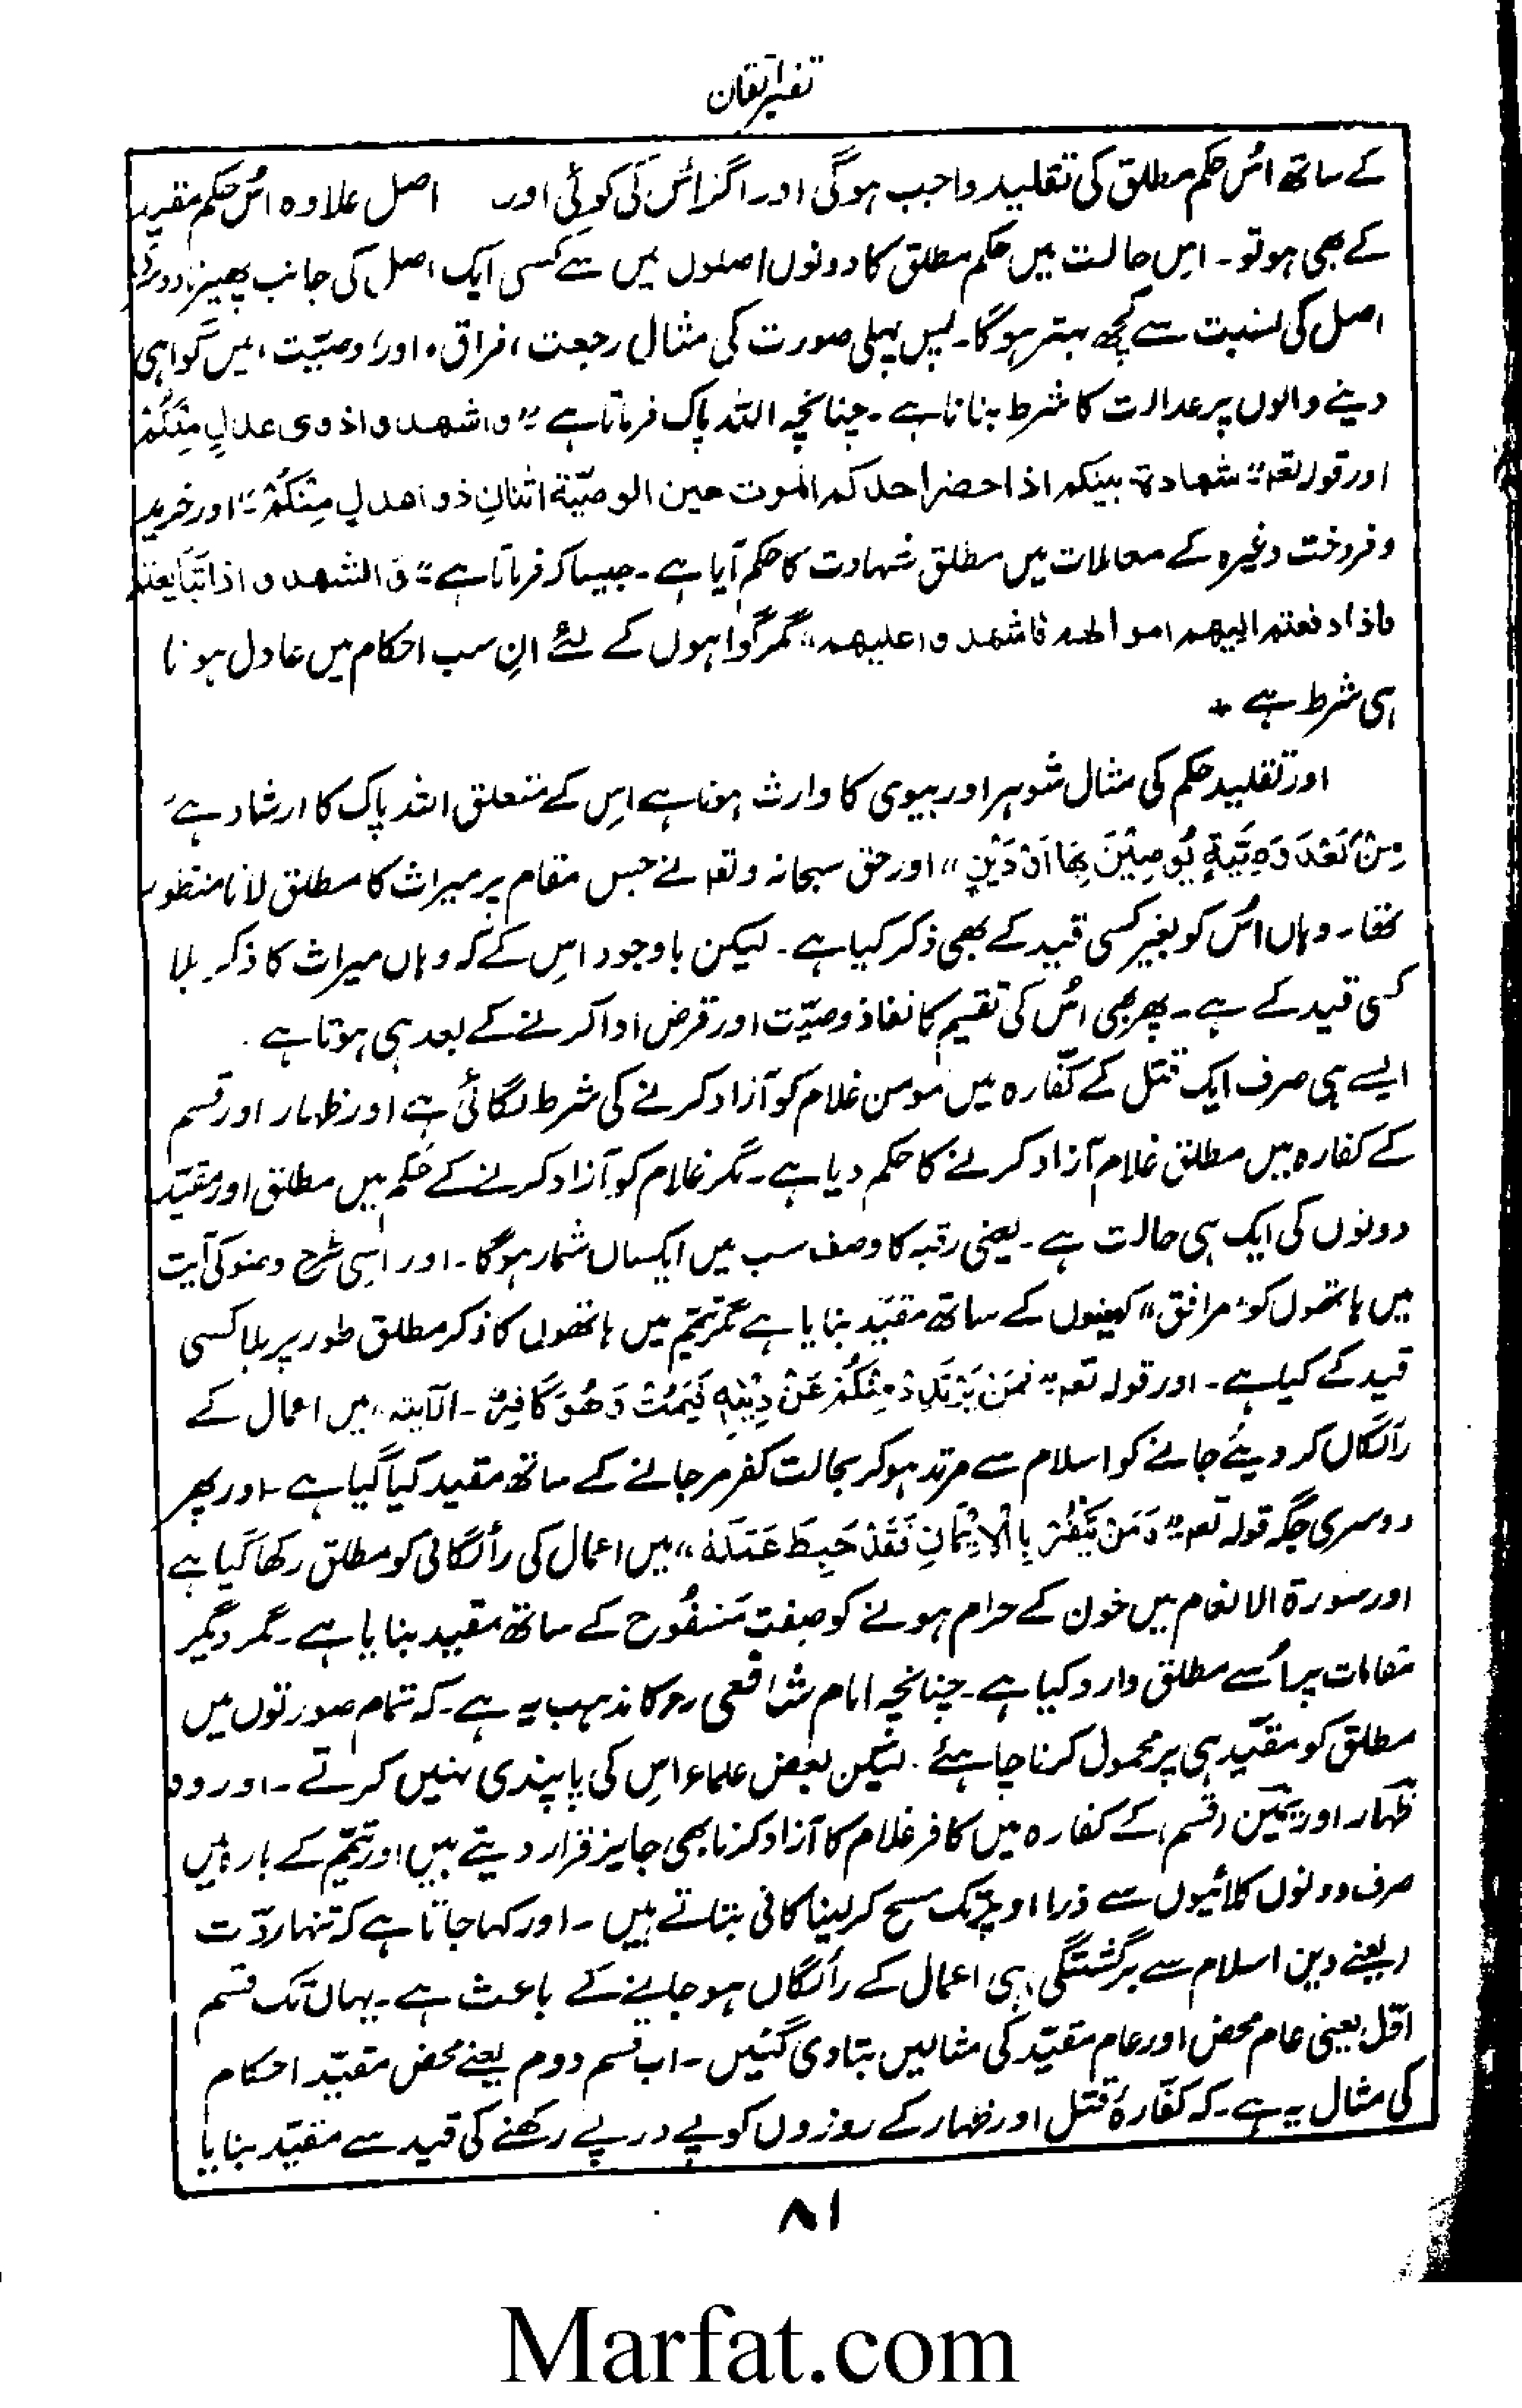 تفسیر اتقان
کے ساتھ اُس حکم مطلق کی تقلید واجب ہوگی اور اگر اُس کی کوئی اور اصل علاوہ اُس حکم مقید
کے بھی ہو تو۔ اس حالت میں حکم مطلق کا دونوں اصلوں میں سے کسی ایک اصل کی جانب پھیرنا دوسری
اصل کی نسبت سے کچھ بہتر ہوگا۔ پس پہلی صورت کی مثال رجعت، فراق، اور وصیّت، میں گواہی
دینے والوں پر عدالت کا شرط بنانا ہے۔ چنانچہ اللہ پاک فرماتا ہے "واشھدوا ذوی عدلٍ مِنْکُمْ
اور قولہ تعہ "شھادۃ بینکم اذا حضر احدکم الموت حین الوصیّۃ اثنانِ ذواعدلٍ مِنْکُمْ" اور خرید
و فروخت وغیرہ کے معاملات میں مطلق شہادت کا حکم آیا ہے۔ جیسا کہ فرماتا ہے "وَ اشھدوا اذا تَبَایعتم
فاذا دفعتم الیھم اموالھم فاشھدوا علیھم" مگر گواہوں کے لئے اِن سب احکام میں عادل ہونا
ہی شرط ہے +
اور تقلید حکم کی مثال شوہر اور بیوی کا وارث ہونا ہے اِس کے متعلق اللہ پاک کا ارشاد ہے
مِنْ بَعْدِ وَصِیَّۃٍ یُوصِیْنَ بِھَا اَوْ دَیْنٍ" اور حق سبحانہ وتعہ نے جس مقام پر میراث کا مطلق لانا منظور
تھا۔ وہاں اُس کو بغیر کسی قید کے بھی ذکر کیا ہے۔ لیکن باوجود اِس کے کہ وہاں میراث کا ذکر بلا
کسی قید کے ہے۔ پھر بھی اُس کی تقسیم کا نفاذ وصیّت اور قرض ادا کرنے کے بعد ہی ہوتا ہے۔
ایسے ہی صرف ایک قتل کے کفّارہ میں مومن غلام کو آزاد کرنے کی شرط لگائی ہے اور ظہار اور قسم
کے کفارہ میں مطلق غلام آزاد کرنے کا حکم دیا ہے۔ مگر غلام کو آزاد کرنے کے حُکم میں مطلق اور مقیّد
دونوں کی ایک ہی حالت ہے۔ یعنی رقبہ کا وصف سب میں ایکساں شمار ہوگا۔ اور اسی طرح وضو کی آیت
میں ہاتھوں کو "مرافق" کہنیوں کے ساتھ مقیّد بنایا ہے مگر تیمّم میں ہاتھوں کا ذکر مطلق طور پر بلا کسی
قید کے کیا ہے۔ اور قولہ تعہ "فَمَنْ یَرْتَدِدْ مِنْکُمْ عَنْ دِیْنِہٖ فَیَمُتْ وَھُوَ کَافِرٌ۔ الآیتہ" میں اعمال کے
رائگاں کر دیئے جانے کو اسلام سے مرتد ہو کر بحالت کفر مر جانے کے ساتھ مقید کیا گیا ہے۔ اور پھر
دوسری جگہ قولہ تعہ "وَمَنْ یَکْفُرْ بِالْاِیْمَانِ فَقَدْ حَبِطَ عَمَلُہٗ" میں اعمال کی رائگانی کو مطلق رکھا گیا ہے
اور سورۃ الانعام میں خون کے حرام ہونے کو صفت مَسْفُوح کے ساتھ مقید بنایا ہے۔ مگر دیگر
مقامات پر اُسے مطلق وارد کیا ہے۔ چنانچہ امام شافعی رح کا مذہب یہ ہے۔ کہ تمام صورتوں میں
مطلق کو مقیّد ہی پر محمول کرنا چاہئے۔ لیکن بعض علماء اِس کی پابندی نہیں کرتے۔ اور وہ
ظہار اور یمین (قسم) کے کفارہ میں کافر غلام کا آزاد کرنا بھی جایز قرار دیتے ہیں اور تیمّم کے بارہ میں
صرف دونوں کلائیوں سے ذرا اوپر تک مسح کر لینا کافی بتاتے ہیں۔ اور کہا جاتا ہے کہ تنہا ردّت
(یعنے دین اسلام سے برگشتگی) ہی اعمال کے رائگاں ہو جانے کے باعث ہے۔ یہاں تک قسم
اوّل یعنی عام محض اور عام مقیّد کی مثالیں بتا دی گئیں۔ اب قسم دوم یعنے محض مقیّد احکام
کی مثال یہ ہے۔ کہ کفّارۂ قتل اور ظہار کے روزوں کو پے در پے رکھنے کی قید سے مقیّد بنایا
۸۱
Marfat.com